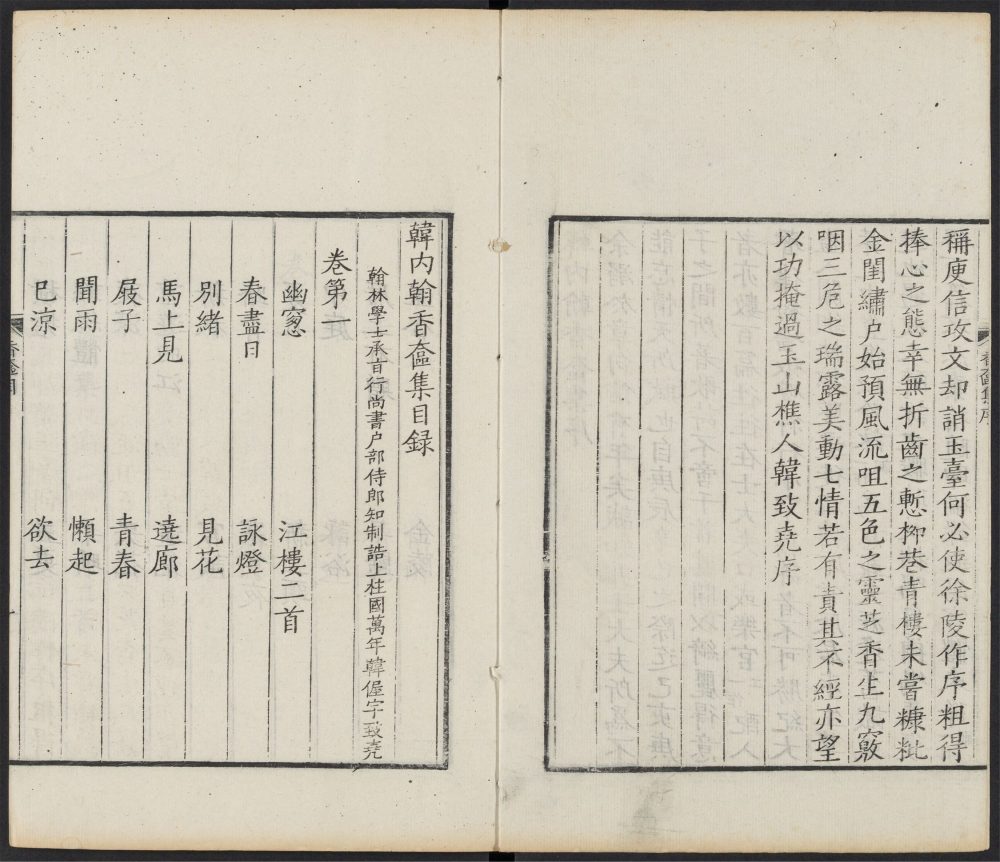 稱庾信攻文却誚玉臺何必使徐陵作序粗得
捧心之態幸無折齒之慙柳巷青樓未嘗糠粃
金閨繡户始預風流咀五色之靈芝香生九竅
咽三危之瑞露美動七情若有責其不經亦望
以功掩過玉山樵人韓致堯序
韓内翰香奩集目録
翰林學士承旨行尚書户部侍郎知制誥上柱國萬年韓偓字致堯
卷第一
幽窻
江樓二首
春盡日
詠燈
別緒
見花
馬上見
遶廊
屐子
青春
聞雨
懶起
已涼
欲去